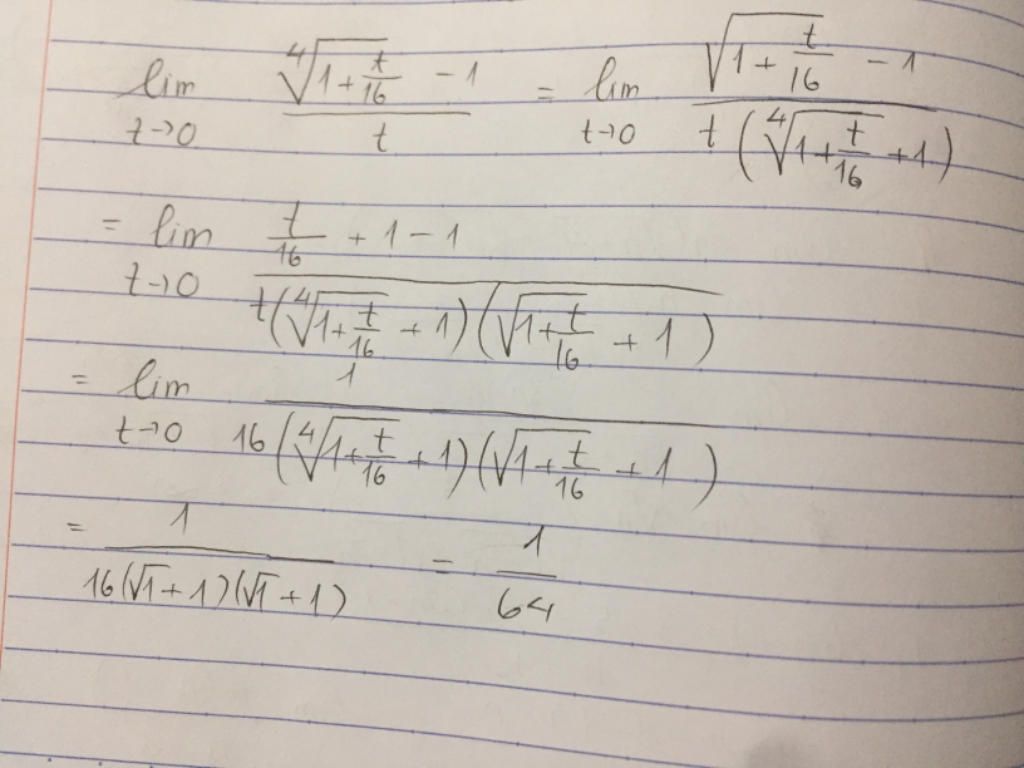 lim t→0 (∜(1+t/16) - 1)/t = lim t→0 (√(1+t/16) - 1)/(t(∜(1+t/16) + 1))
= lim t→0 (t/16 + 1 - 1)/(t(∜(1+t/16) + 1)(√(1+t/16) + 1))
= lim t→0 1/(16(∜(1+t/16) + 1)(√(1+t/16) + 1))
= 1/(16(√1+1)(√1+1)) = 1/64